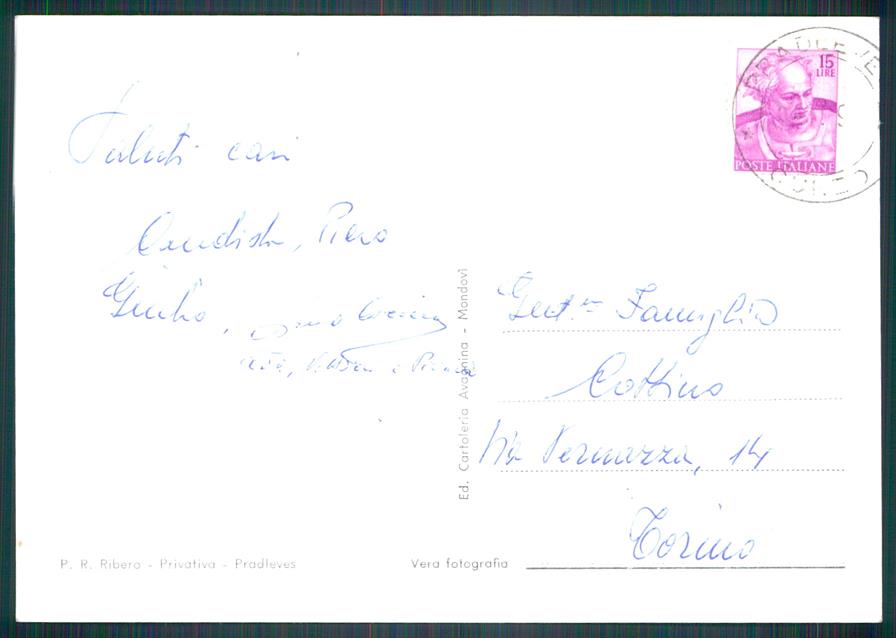 Saluti cari
Piero
Giulio,
Gent.ma Famiglia
Cottino
Via Vernazza, 14
Torino
PRADLEVES
CUNEO
15
LIRE
POSTE ITALIANE
Ed. Cartoleria Avagnina - Mondovì
P. R. Ribero - Privativa - Pradleves
Vera fotografia